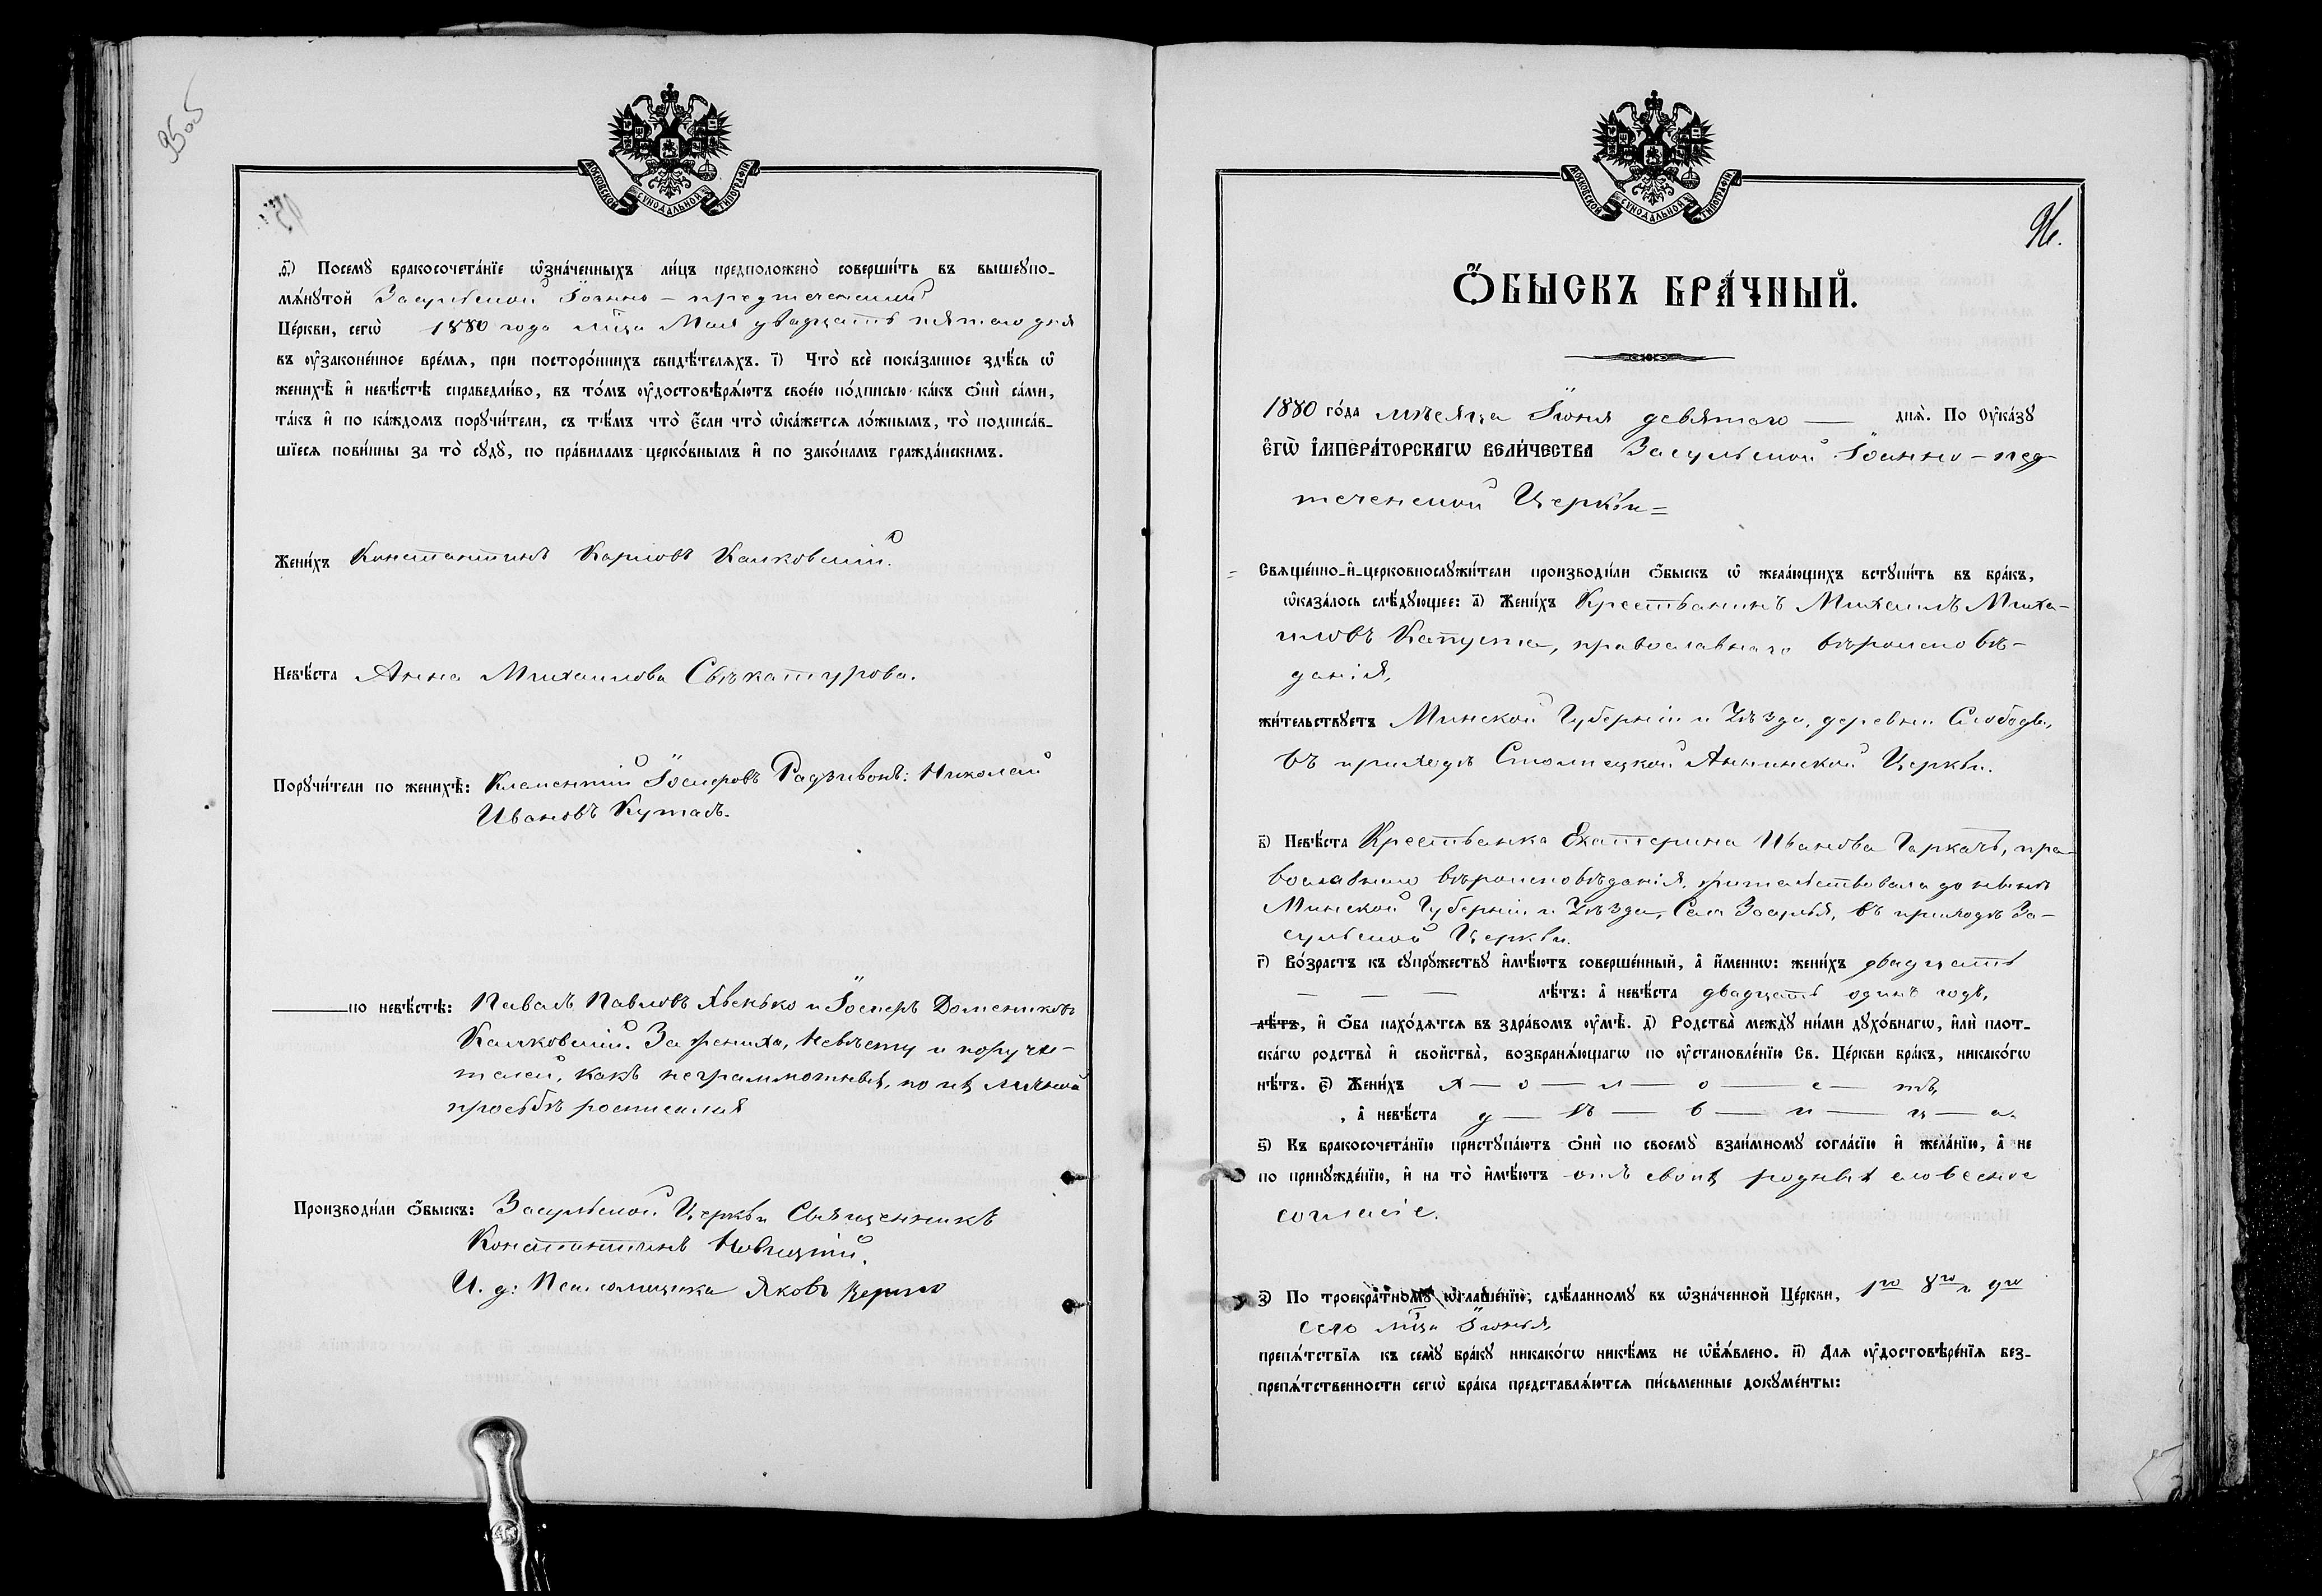 95об
МОСКОВСКОЙ СУНОДАЛЬНОЙ ТИПОГРАФІИ
ѳ҃) Посемꙋ̀ бракосочета́нїе ѡ҆зна́ченныхъ ли́цъ предположено̀ соверши́ть въ вышеꙋпо-
мѧ́нꙋтой Засульской Іоанно-предтеченской
Це́ркви, сегѡ̀ 1880 года м̃ца Мая двадцать пятаго дня
въ ᲂу҆законе́нное вре́мѧ, при посторо́ннихъ свидѣ́телѧхъ. і҃) Что̀ всѐ пока́занное здѣ́сь ѡ҆
женихѣ̀ и҆ невѣ́стѣ справедли́во, въ то́мъ ᲂу҆достовѣрѧ́ютъ свое́ю по́дписью ка́къ ѻ҆нѝ са́ми,
та́къ и҆ по ка́ждомъ порꙋчи́тели, съ тѣ́мъ что̀ є҆́сли что̀ ѡ҆ка́жетсѧ ло́жнымъ, то̀ подписа́в-
шїесѧ пови́нны за то̀ сꙋдꙋ̀, по пра́виламъ церко́внымъ и҆ по зако́намъ гражда́нскимъ.
Жени́хъ Константинъ Карповъ Калковскій.
Невѣ́ста Анна Михаилова Свѣкатурова.
Порꙋчи́тели по женихѣ̀: Клементій Іосифовъ Радзивонъ: Николай
Ивановъ Куталъ.
по невѣ́стѣ: Павалъ Павловъ Явенько и Іосифъ Доминиковъ
Калковскій. За жениха, невѣсту и поручи-
телей, какъ неграммотныхъ, по ихъ личной
просьбѣ росписался
Производи́ли ѻ҆́быскъ: Засульской Церкви Священникъ
Константинъ Новицкій.
И. д: Псаломщика Яковъ
96.
МОСКОВСКОЙ СУНОДАЛЬНОЙ ТИПОГРАФІИ
Ѻ҆́БЫСКЪ БРА́ЧНЫЙ.
1880 го́да мѣсяца Іюня девятаго дня̀. По Оу҆ка́зꙋ
Є҆ГѠ̀ І҆МПЕРА́ТОРСКАГѠ ВЕЛИ́ЧЕСТВА Засульской Іоанно-пед-
теченской Церкви=
Свѧще́нно-и҆-церковнослꙋжи́тели производи́ли ѻ҆́быскъ ѡ҆ жела́ющихъ встꙋпи́ть въ бра́къ,
ѡ҆каза́лось слѣ́дꙋющее: а҃) Жени́хъ Крестьянинъ Михаилъ Миха-
иловъ Капуста, православнаго вѣроисповѣ-
данія,
жи́тельствꙋетъ Минской Губерніи и Уѣзда, деревни Слободы,
въ приходѣ Столпецкой Аннинской Церкви.
в҃) Невѣ́ста Крестьянка Екатерина Иванова Гаркачъ, пра-
вославнаго вѣроисповѣданія, жительствовала до нынѣ
Минской Губерніи и Уѣзда, Села Засулья, въ приходѣ За-
сульской Церкви.
г҃) Во́зрастъ къ сꙋпрꙋ́жествꙋ и҆мѣ́ютъ соверше́нный, а҆ и҆́меннѡ: жени́хъ двадцать
лѣ́тъ: а҆ невѣ́ста двадцать одинъ годъ,
лѣ́тъ, и҆ ѻ҆́ба нахо́дѧтсѧ въ здра́вомъ ᲂу҆мѣ̀. д҃) Родства̀ междꙋ̀ ни́ми дꙋхо́внагѡ, и҆лѝ плот-
ска́гѡ родства̀ и҆ сво́йства̀, возбранѧ́ющагѡ по ᲂу҆становле́нїю Св. Це́ркви бра́къ, никако́гѡ
нѣ́тъ. є҃) Жени́хъ х — о — л — о — с — тъ,
, а҆ невѣ́ста д — ѣ — в — и — ц — а.
ѕ҃) Къ бракосочета́нїю пристꙋпа́ютъ ѻ҆нѝ по своемꙋ̀ взаи́мномꙋ согла́сїю и҆ жела́нїю, а҆ не
по принꙋжде́нїю, и҆ на то̀ и҆мѣ́ютъ отъ своихъ родныхъ словесное
согласіе.
з҃) По троекра́тномꙋ ѡ҆глаше́нїю, сдѣ́ланномꙋ въ ѡ҆зна́ченной Це́ркви, 1го 8го и 9го
сего м̃ца Іюня,
препѧ́тствїѧ къ семꙋ̀ бра́кꙋ никако́гѡ никѣ́мъ не ѡ҆б̾ѧ́влено. и҃) Для ᲂу҆достовѣре́нїѧ без-
препѧ́тственности сегѡ̀ бра́ка представлѧ́ютсѧ пи́сьменные докꙋме́нты: